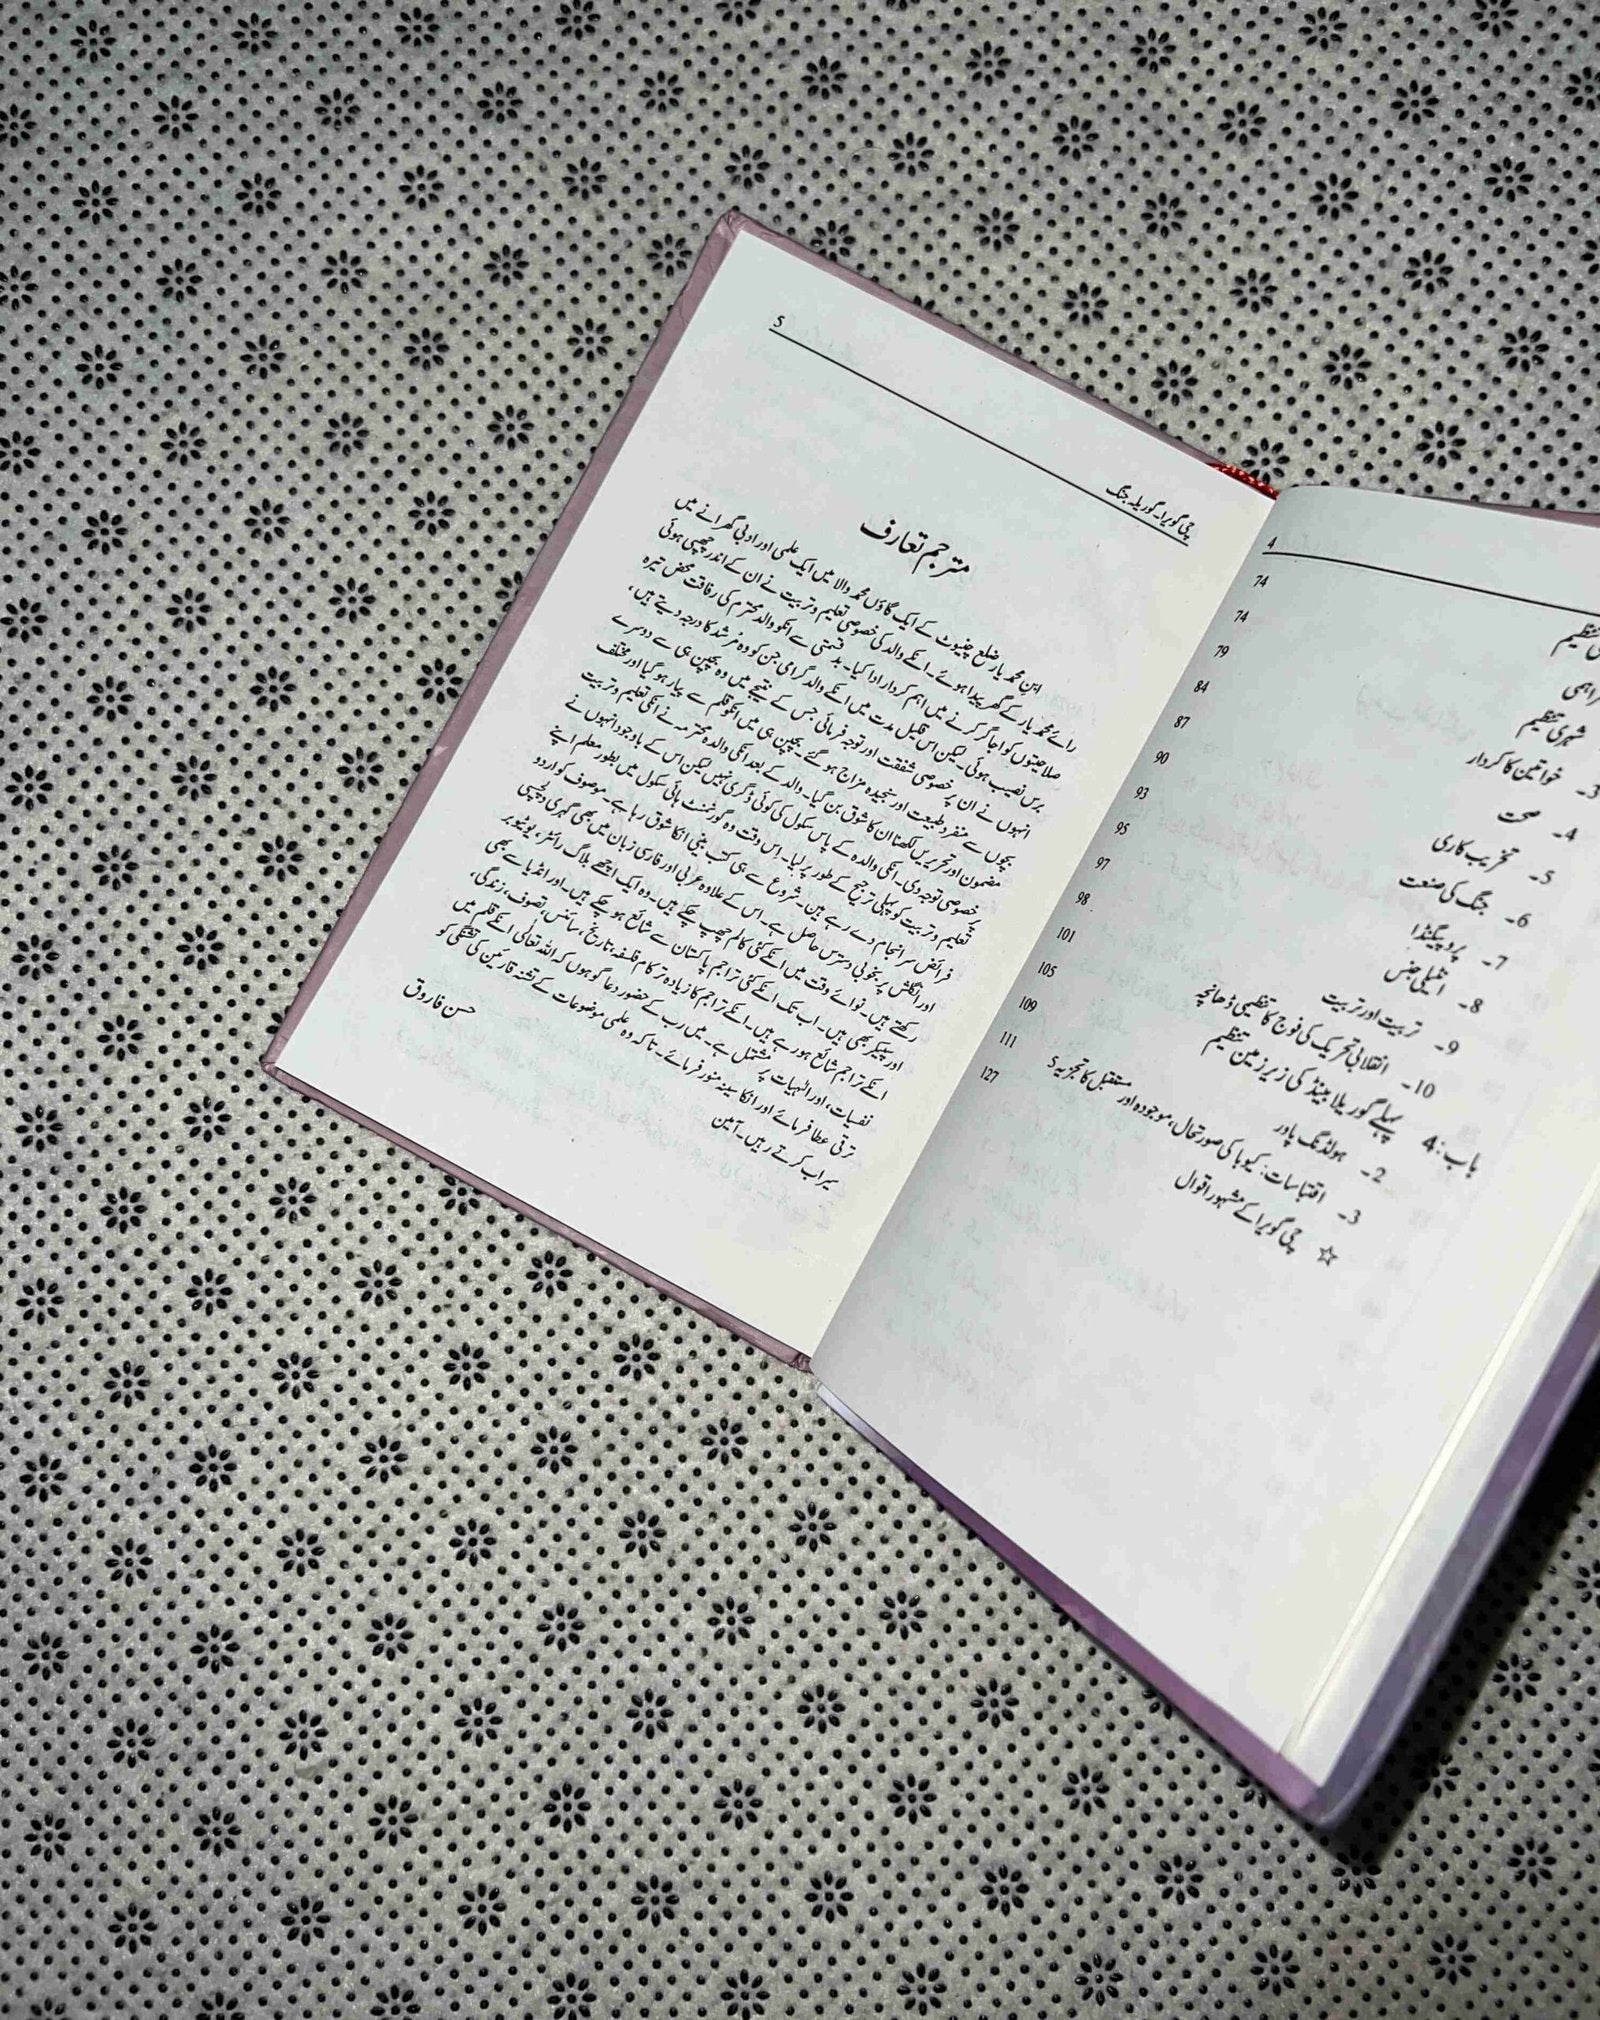 4
74
ی تنظیم
74
راہمی
79
شہری تنظیم
84
3۔ خواتین کا کردار
87
4۔ صحت
90
5۔ تخریب کاری
93
6۔ جنگ کی صنعت
95
7۔ پروپیگنڈا
97
8۔ انٹیلی جنس
98
9۔ تربیت اور تربیت
101
10۔ انقلابی تحریک کی فوج کا تنظیمی ڈھانچہ
105
باب:4 پہلے گوریلا بینڈ کی زیر زمین تنظیم
109
2۔ ہولڈنگ پاور
111
3۔ اقتباسات: کیوبا کی صورتحال، موجودہ اور مستقبل کا تجزیہ S
127
☆ چی گویرا کے مشہور اقوال
چی گویرا۔ گوریلہ جنگ
5
مترجم تعارف
ابنِ محمد یار ضلع چنیوٹ کے ایک گاؤں محمد والا میں ایک علمی اور ادبی گھرانے میں
رائے محمد یار کے گھر پیدا ہوئے۔ انکے والد کی خصوصی تعلیم و تربیت نے ان کے اندر چھپی ہوئی
صلاحیتوں کو اجاگر کرنے میں اہم کردار ادا کیا۔ بد قسمتی سے انکو والد محترم کی رفاقت محض تیرہ
برس نصیب ہوئی۔ لیکن اس قلیل مدت میں انکے والد گرامی جن کو وہ مُرشد کا درجہ دیتے ہیں،
انہوں نے ان پر خصوصی شفقت اور توجہ فرمائی جس کے نتیجے میں وہ بچپن ہی سے دوسرے
بچوں سے منفرد طبیعت اور سنجیدہ مزاج ہو گئے۔ بچپن ہی میں انکو قلم سے پیار ہو گیا اور مختلف
مضمون اور تحریریں لکھنا ان کا شوق بن گیا۔ والد کے بعد انکی والدہ محترمہ نے انکی تعلیم و تربیت
پر خصوصی توجہ دی۔ انکی والدہ کے پاس سکول کی کوئی ڈگری نہیں لیکن اس کے باوجود انہوں نے
تعلیم و تربیت کو پہلی ترجیح کے طور پر لیا۔ اس وقت وہ گورنمنٹ ہائی سکول میں بطور معلم اپنے
فرائض سر انجام دے رہے ہیں۔ شروع سے ہی کتب بینی انکا شوق رہا ہے۔ موصوف کو اردو
اور انگلش پر بخوبی دسترس حاصل ہے۔ اس کے علاوہ عربی اور فارسی زبان میں بھی گہری دلچسپی
رکھتے ہیں۔ نوائے وقت میں انکے کئی کالم چھپ چکے ہیں۔ وہ ایک اچھے بلاگ رائٹر، یوٹیوبر
اور سپیکر بھی ہیں۔ اب تک انکے کئی تراجم پاکستان سے شائع ہو چکے ہیں۔ اور انڈیا سے بھی
انکے تراجم شائع ہو رہے ہیں۔ انکے تراجم کا زیادہ تر کام فلسفہ، تاریخ، سائنس، تصوف، زندگی،
نفسیات، اور الٰہیات پر مشتمل ہے۔ میں رب کے حضور دعا گو ہوں کہ اللہ تعالٰی انکے قلم میں
ترقی عطا فرمائے اور انکا سینہ منور فرمائے۔ تاکہ وہ علمی موضوعات کے تشنہ قارئین کی تشنگی کو
سیراب کرتے رہیں۔ آمین
حسن فاروق